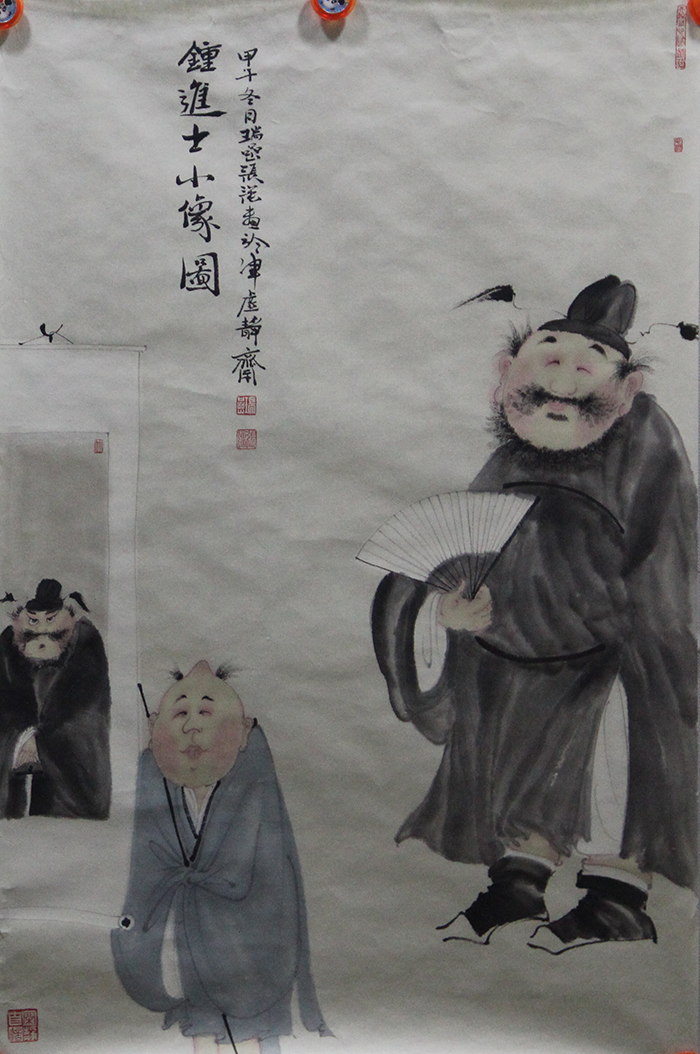 鍾進士小像圖
甲午冬日瑞張畫於津虛靜齋